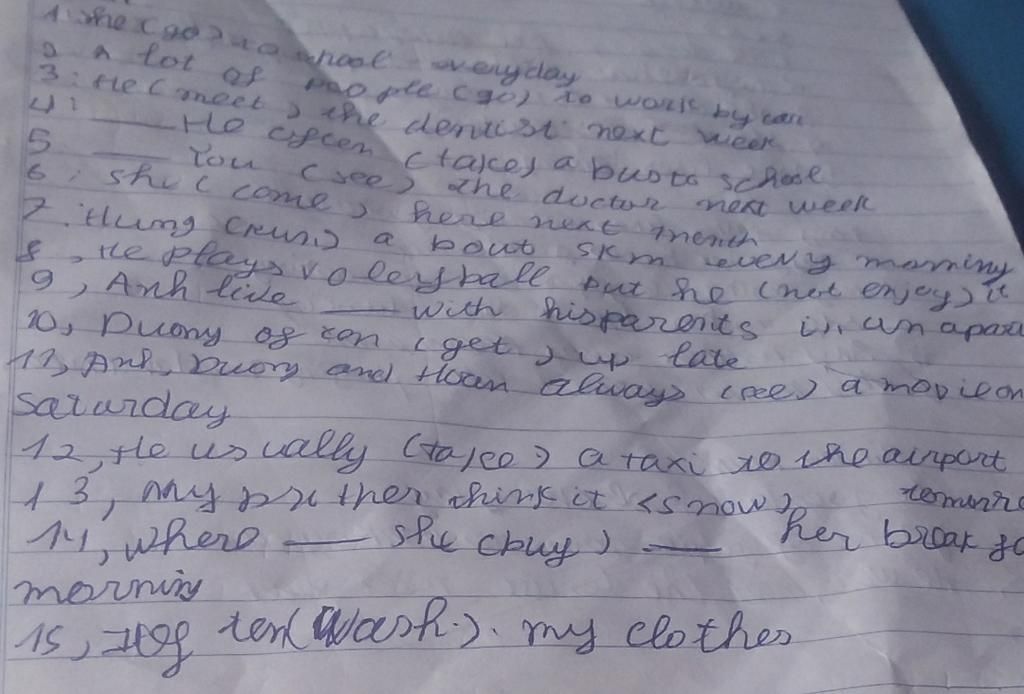 1. She (go) to school everyday
2 A lot of people (go) to work by car
3: He (meet) the dentist next week
4: ___ He often (take) a bus to school
5 ___ You (see) the doctor next week
6: she (come) here next month
7. Hung (run) a bout 5km every morning
8, He plays voleyball but he (not enjoy) it
9, Anh live ___ with hisparents in an apar
10, Duong of ten (get) up late
11, Anh, Duong and Hoan always (see) a movie on
saturday
12, He usually (take) a taxi to the airport
13, My brother think it (snow)
14, where ___ she (buy) ___ her break fa
morning
15, I of ten (Wash.). my clothes